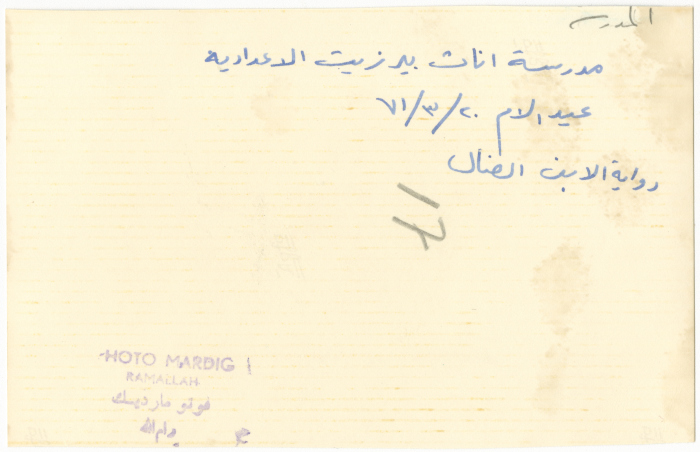 المدرسة
مدرسة اناث بير زيت الاعداديه
عيد الام ٢٠/٣/٧١
رواية الابن الضال
PHOTO MARDIG
RAMALLAH
فوتو مارديك
رام الله